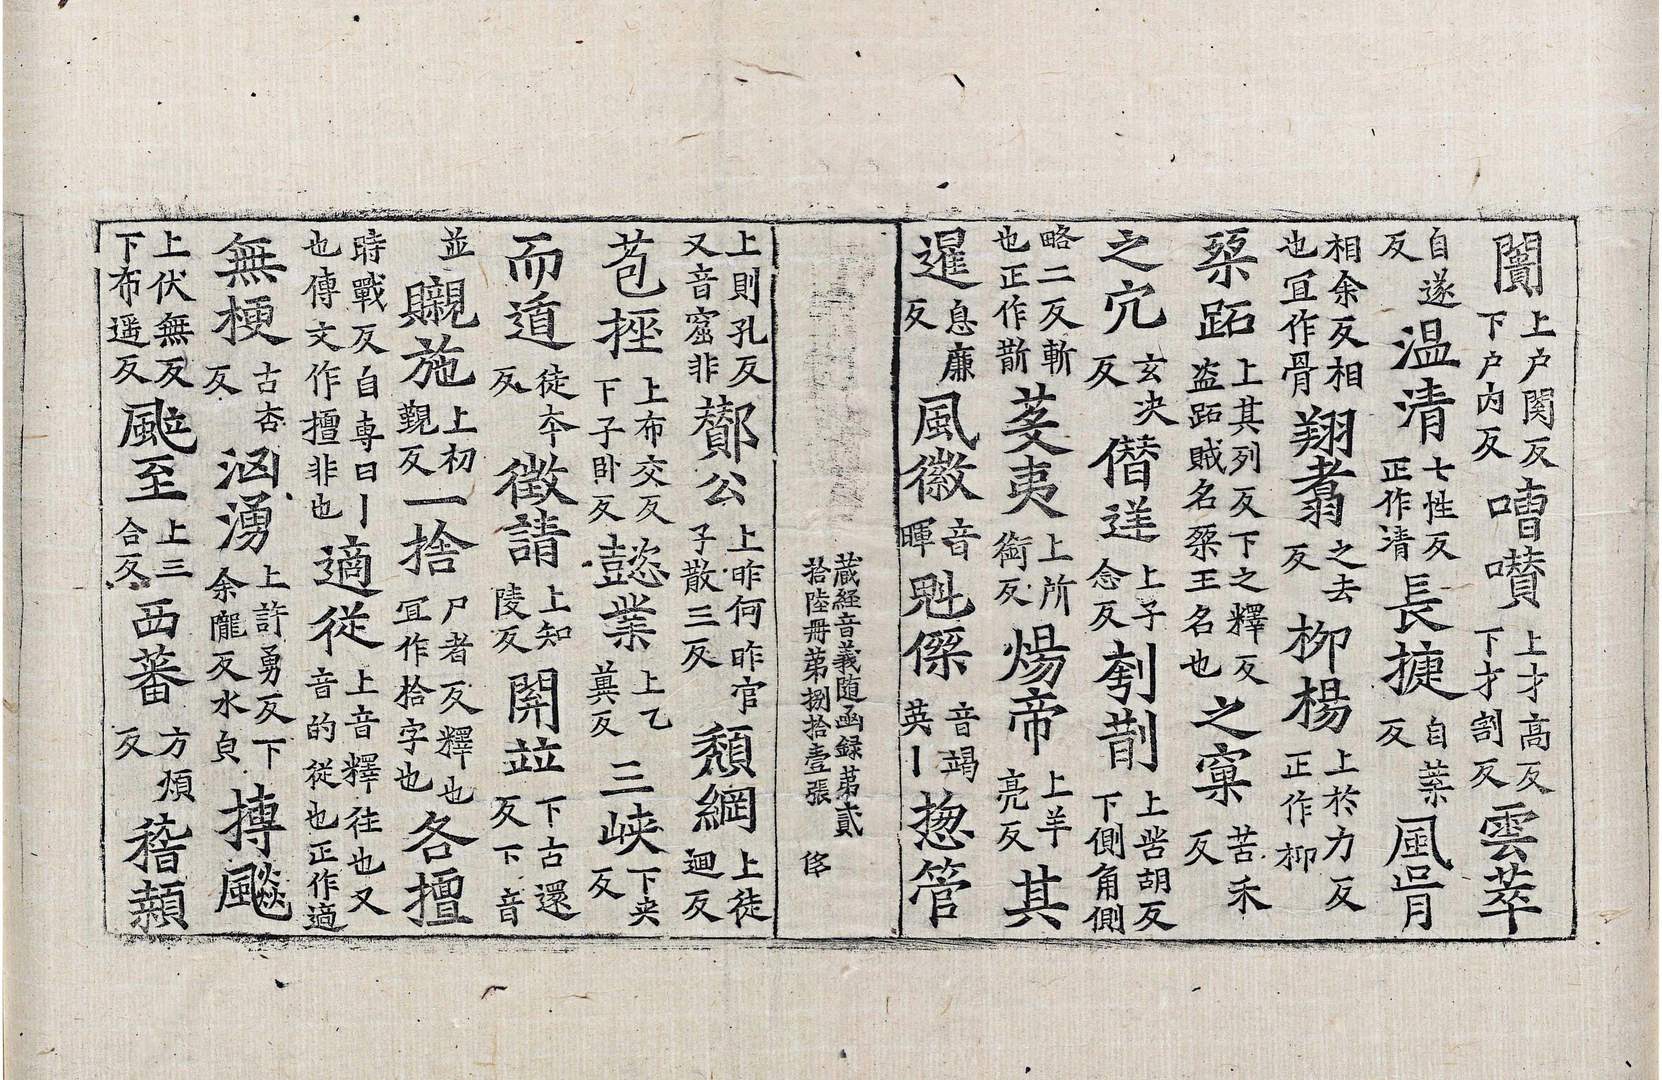 闠上户関反下户内反嘈囋上才高反下才割反雲萃
自遂反温清七性反正作清長㨗自葉反風肯
相余反相也冝作骨翔翥之去反栁楊上於力反正作栁
桀跖上其列反下之釋反盗跖賊名桀王名也之窠苦禾反
之穴玄决反僭送上子念反刳㓸上苦胡反下側角側
略二反斬也正作斮芟夷上所銜反煬帝上羊亮反其
暹息廉反風徽音暉剋傑音竭英丨揔管
蔵経音義随函録第貳拾陸冊苐捌拾壹張 侈
上則孔反又音窓非酇公上昨何昨官子散三反頽綱上徒迴反
苞挫上布交反下子卧反懿業上乙冀反三峽下夾反
而遁徒夲反徵請上知陵反開並下古還反下音
並䞋施上初覲反一捨尸者反釋也冝作拾字也各擅
時戰反自専曰丨也傳文作擅非也適従上音釋徃也又音的従也正作適
無梗古杏反洶湧上許勇反下余龐反水皃摶飈
上伏無反下布遥反颯至上三合反西蕃方煩反稽顙